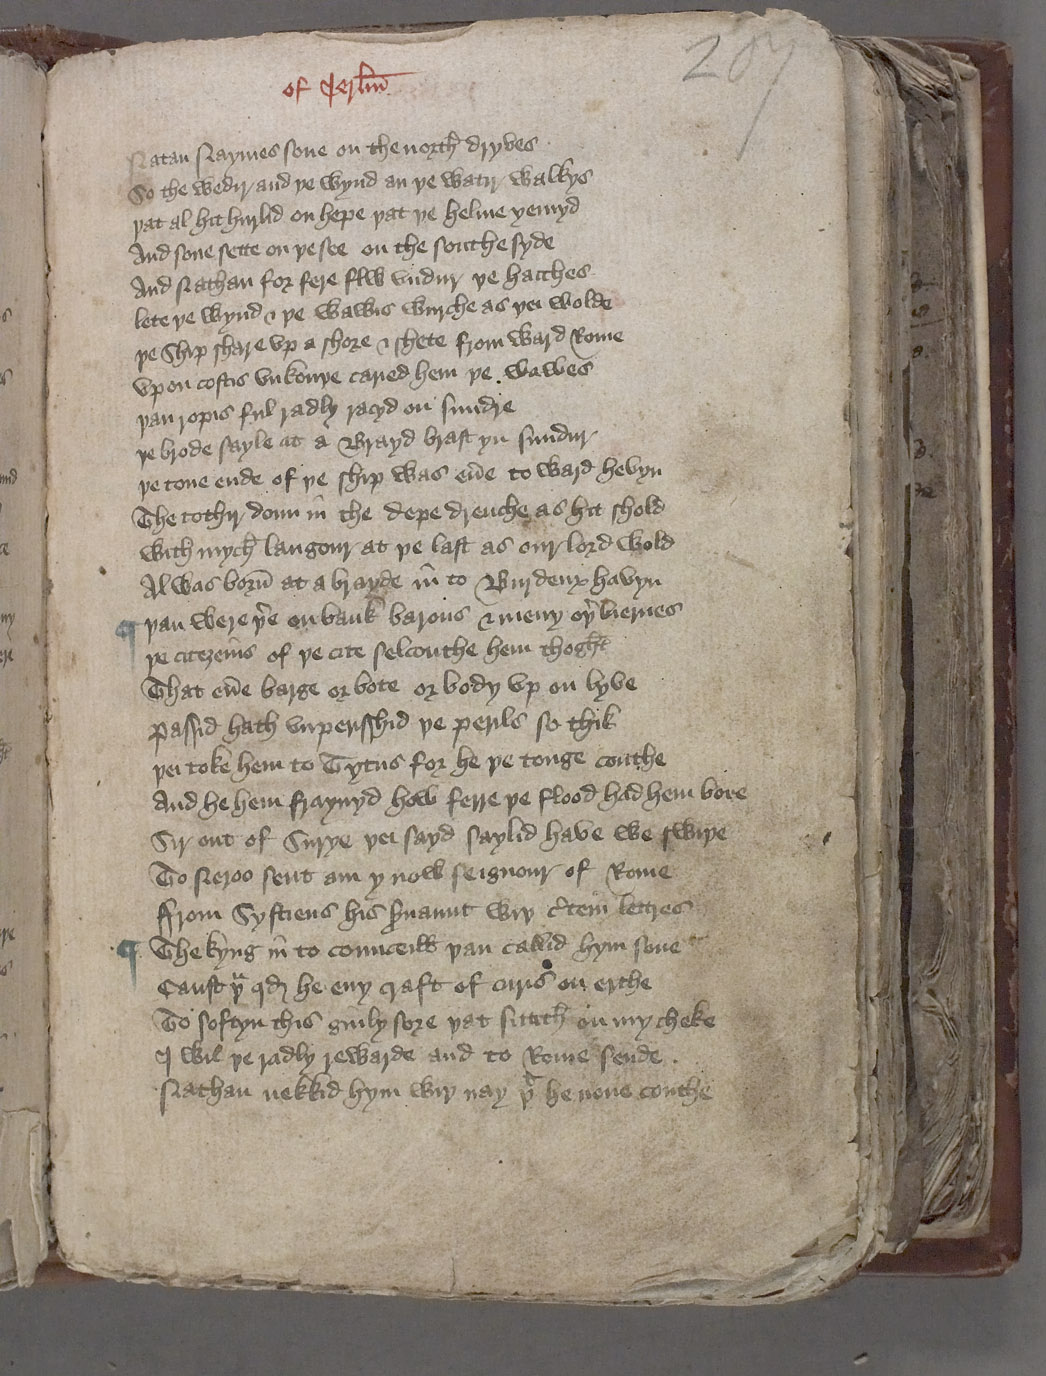 of Jerlm̄
207
Natan Naymes sone on the north dryves
So the wedir and þe wynd an þe watir walkys
þat al hit hurlid on hepe þat þe helme ȝemyd
And sone sette on þe see on the southe syde
And Nathan for fere flw vndur þe hacches
lete þe wynd & þe wawis wirche as þei wolde
þe Ship share vp a shore & shete from ward Rome
vp on costis vnkonþe caried hem þe wawes
þan ropis ful radly racyd on sundre
þe brode sayle at a Brayd brast yn sundur
þe tone ende of þe ship was eūe to ward hevyn
The tothir doun īn the depe drenche as hit shold
With mych langour at þe last as our lord wold
Al was born̄ at a brayde īn to Burdeux havyn
¶ þan were þ̄e on bank barons & meny oþ̄ biernes
þe citezeīns of þe cite selcouthe hem thoght
That eūe barge or bote or body vp on lyve
passid hath vnperisshid þe perils so thik
þei toke hem to Tytus for he þe tonge couthe
And he hem fraynyd how ferre þe flood had hem bore
Sir out of Surye þei sayd saylid have we swiþe
To Neroo sent am y now seignour of Rome
ffrom Systiens his s̄uaunt wiþ c̄tein lettres
¶ The kyng īn to counceill þan callid hym sone
Canst þu qd he eny craft of curis on erthe
To softyn this grīly sore þat sittith on my cheke
I wil þe radly rewarde and to Rome sende .
Nathan nekkid hym wiþ nay þt he none couthe